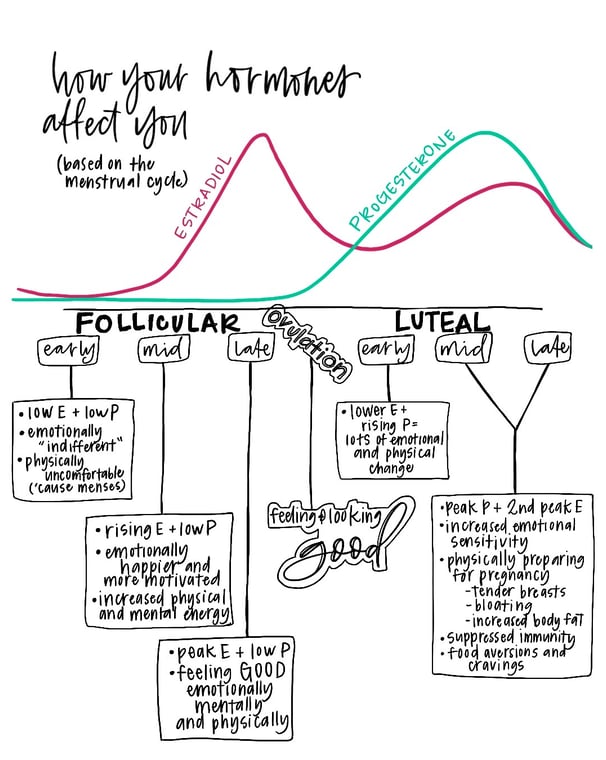 how your hormones
affect you
(based on the
menstrual cycle)
ESTRADIOL
PROGESTERONE
FOLLICULAR
ovulation
LUTEAL
early
mid
late
early
mid
late
• low E + low P
• emotionally
"indifferent"
• physically
uncomfortable
('cause menses)
• rising E + low P
• emotionally
happier and
more motivated
• increased physical
and mental energy
• peak E + low P
• feeling GOOD
emotionally
mentally
and physically
feeling + looking
good
• lower E +
rising P =
lots of emotional
and physical
change
• peak P + 2nd peak E
• increased emotional
sensitivity
• physically preparing
for pregnancy
- tender breasts
- bloating
- increased body fat
• suppressed immunity
• food aversions and
cravings